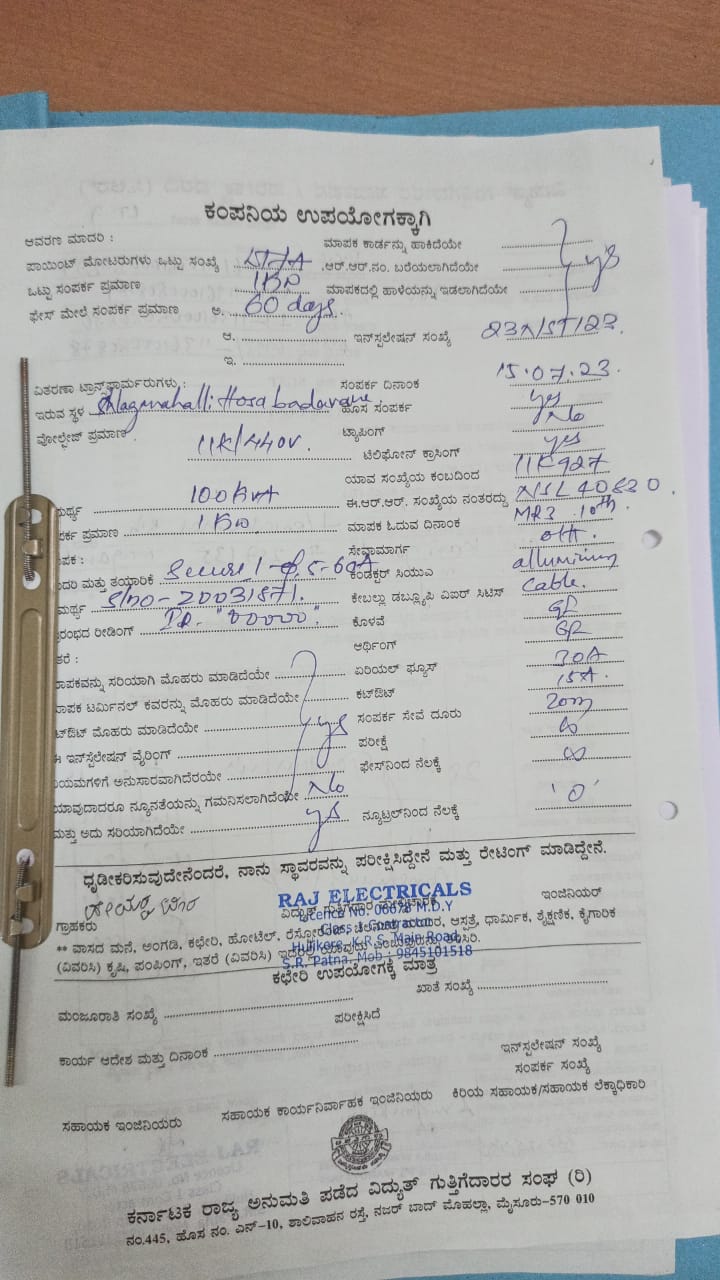 ಕಂಪನಿಯ ಉಪಯೋಗಕ್ಕಾಗಿ
ಆವರಣ ಮಾದರಿ :
ಮಾಪಕ ಕಾರ್ಡನ್ನು ಹಾಕಿದೆಯೇ
ಪಾಯಿಂಟ್ ಮೋಟರುಗಳು ಒಟ್ಟು ಸಂಖ್ಯೆ
.ಆರ್.ಆರ್.ನಂ. ಬರೆಯಲಾಗಿದೆಯೇ yes
ಒಟ್ಟು ಸಂಪರ್ಕ ಪ್ರಮಾಣ 1KW ಮಾಪಕದಲ್ಲಿ ಹಾಳೆಯನ್ನು ಇಡಲಾಗಿದೆಯೇ
ಫೇಸ್ ಮೇಲೆ ಸಂಪರ್ಕ ಪ್ರಮಾಣ ಅ. 60 days.
ಆ. ಇನ್‌ಸ್ಪಲೇಷನ್ ಸಂಖ್ಯೆ
ಇ.
ವಿತರಣಾ ಟ್ರಾನ್ಸ್‌ಫಾರ್ಮರುಗಳು : ಸಂಪರ್ಕ ದಿನಾಂಕ 15.07.23.
ಇರುವ ಸ್ಥಳ Hosa badavane ಹೊಸ ಸಂಪರ್ಕ yes
ವೋಲ್ಟೇಜ್ ಪ್ರಮಾಣ 11K/440V. ಟ್ಯಾಪಿಂಗ್ No
ಟೆಲಿಫೋನ್ ಕ್ರಾಸಿಂಗ್ yes
ಯಾವ ಸಂಖ್ಯೆಯ ಕಂಬದಿಂದ 11K927
ಮರ್ಥ್ಯ 100KVA ಈ.ಆರ್.ಆರ್. ಸಂಖ್ಯೆಯ ನಂತರದ್ದು NSL40830.
ಪರ್ಕ ಪ್ರಮಾಣ 1KW. ಮಾಪಕ ಓದುವ ದಿನಾಂಕ MR3 10th.
ಪಕ : ಸೇವಾಮಾರ್ಗ OH.
ದರಿ ಮತ್ತು ತಯಾರಿಕೆ Secure 1-φ, 5-60A ಕಂಡಕ್ಟರ್ ಸಿಯುಎ alluminium
ಮರ್ಥ್ಯ S/no-20031871. ಕೇಬಲ್ಲು ಡಬ್ಲ್ಯೂಪಿ ವಿಐರ್ ಸಿಟಿಸ್ Cable.
ರಂಭದ ರೀಡಿಂಗ್ IR. "00000". ಕೊಳವೆ GI
ಆರ್ಥಿಂಗ್
ತರೆ :
ಾಪಕವನ್ನು ಸರಿಯಾಗಿ ಮೊಹರು ಮಾಡಿದೆಯೇ ಏರಿಯಲ್ ಫ್ಯೂಸ್ 30A
ಾಪಕ ಟರ್ಮಿನಲ್ ಕವರನ್ನು ಮೊಹರು ಮಾಡಿದೆಯೇ ಕಟ್‌ಔಟ್ 15A.
ಟ್‌ಔಟ್ ಮೊಹರು ಮಾಡಿದೆಯೇ yes ಸಂಪರ್ಕ ಸೇವೆ ದೂರು 20m
ಈ ಇನ್‌ಸ್ಪೆಲೇಷನ್ ವೈರಿಂಗ್ ಪರೀಕ್ಷೆ ∞
ಿಯಮಗಳಿಗೆ ಅನುಸಾರವಾಗಿದೆರಯೇ ಫೇಸ್‌ನಿಂದ ನೆಲಕ್ಕೆ ∞
ಯಾವುದಾದರೂ ನ್ಯೂನತೆಯನ್ನು ಗಮನಿಸಲಾಗಿದೆಯೇ No
ಮತ್ತು ಅದು ಸರಿಯಾಗಿದೆಯೇ yes ನ್ಯೂಟ್ರಲ್‌ನಿಂದ ನೆಲಕ್ಕೆ '0'
ಧೃಡೀಕರಿಸುವುದೇನೆಂದರೆ, ನಾನು ಸ್ಥಾವರವನ್ನು ಪರೀಕ್ಷಿಸಿದ್ದೇನೆ ಮತ್ತು ರೇಟಿಂಗ್ ಮಾಡಿದ್ದೇನೆ.
RAJ ELECTRICALS
ಗ್ರಾಹಕರು ವಿದ್ಯುತ್ ಗುತ್ತಿಗೆದಾರ ಇಂಜಿನಿಯರ್
M.D.Y
Class I Contractor
Hulikere, K.R.S. Main Road
S.R. Patna. Mob : 9845101518
** ವಾಸದ ಮನೆ, ಅಂಗಡಿ, ಕಛೇರಿ, ಹೋಟೆಲ್, ಆಸ್ಪತ್ರೆ, ಧಾರ್ಮಿಕ, ಶೈಕ್ಷಣಿಕ, ಕೈಗಾರಿಕ
(ವಿವರಿಸಿ) ಕೃಷಿ, ಪಂಪಿಂಗ್, ಇತರೆ (ವಿವರಿಸಿ)
ಕಛೇರಿ ಉಪಯೋಗಕ್ಕೆ ಮಾತ್ರ
ಮಂಜೂರಾತಿ ಸಂಖ್ಯೆ ಪರೀಕ್ಷಿಸಿದೆ ಖಾತೆ ಸಂಖ್ಯೆ
ಕಾರ್ಯ ಆದೇಶ ಮತ್ತು ದಿನಾಂಕ ಇನ್‌ಸ್ಪಲೇಷನ್ ಸಂಖ್ಯೆ
ಸಂಪರ್ಕ ಸಂಖ್ಯೆ
ಸಹಾಯಕ ಇಂಜಿನಿಯರು ಸಹಾಯಕ ಕಾರ್ಯನಿರ್ವಾಹಕ ಇಂಜಿನಿಯರು ಕಿರಿಯ ಸಹಾಯಕ/ಸಹಾಯಕ ಲೆಕ್ಕಾಧಿಕಾರಿ
ಕರ್ನಾಟಕ ರಾಜ್ಯ ಅನುಮತಿ ಪಡೆದ ವಿದ್ಯುತ್ ಗುತ್ತಿಗೆದಾರರ ಸಂಘ (ರಿ)
ನಂ.445, ಹೊಸ ನಂ. ಎನ್-10, ಶಾಲಿವಾಹನ ರಸ್ತೆ, ನಜರ್ ಬಾದ್ ಮೊಹಲ್ಲಾ, ಮೈಸೂರು-570 010